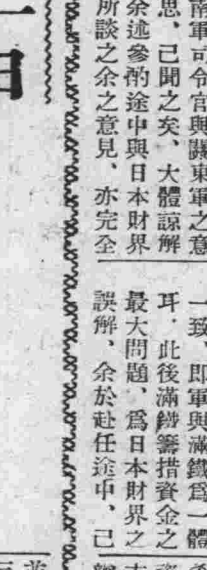 南軍司令官與關東軍之意
思、已聞之矣、大體諒解
余述參酌途中與日本財界
所談之余之意見、亦完全
一致、即軍與滿鐵爲一體
耳、此後滿鐵籌措資金之
最大問題、爲日本財界之
誤解、余於赴任途中、已
日